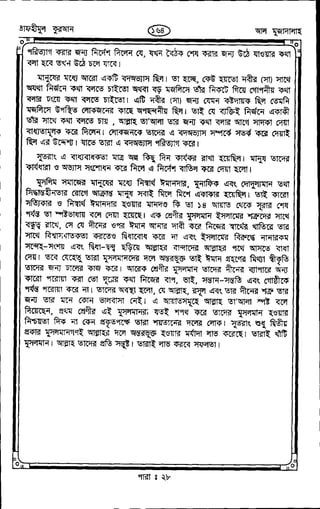 তাফহীমুল কুরআন
১৬৪
আল মুজাদালাহ
পরিত্যাগ করার জন্য নির্দেশ দিলেন যে, যখন বৈঠক শেষ করার জন্য উঠে যাওয়ার কথা
বলা হবে তখন উঠে চলে যাবে।
মানুষের মধ্যে আরো একটা বদঅভ্যাস ছিল। তা হচ্ছে, কেউ হয়তো নবীর (সা) সাথে
অযথা নির্জনে কথা বলতে চাইতো অথবা বড় মজলিসে তাঁর নিকটে গিয়ে গোপনীয় কথা
বলার ঢংয়ে কথা বলতে চাইতো। এটি নবীর (সা) জন্য যেমন কষ্টদায়ক ছিল তেমনি
মজলিসে উপস্থিত লোকজনের কাছে অপছন্দনীয় ছিল। তাই যে ব্যক্তিই নির্জনে একাকী
তাঁর সাথে কথা বলতে চায়, আল্লাহ তা'আলা তার জন্য কথা বলার আগে সাদকা দেয়া
বাধ্যতামূলক করে দিলেন। লোকজনকে তাদের এ বদঅভ্যাস সম্পর্কে সতর্ক করে দেয়াই
ছিল এর উদ্দেশ্য। যাতে তারা এ বদঅভ্যাস পরিত্যাগ করে।
সুতরাং এ বাধ্যবাধকতা মাত্র অল্প কিছু দিন কার্যকর রাখা হয়েছিল। মানুষ তাদের
কার্যধারা ও অভ্যাস সংশোধন করে নিলে এ নির্দেশ বাতিল করে দেয়া হলো।
মুসলিম সমাজের মানুষের মধ্যে নিঃস্বার্থ ঈমানদার, মুনাফিক এবং দোদুল্যমান তথা
সিদ্ধান্তহীনতার রোগে আক্রান্ত মানুষ সবাই মিলে মিশে একাকার হয়েছিল। তাই কারো
সত্যিকার ও নিঃস্বার্থ ঈমানদার হওয়ার মানদণ্ড কি তা ১৪ আয়াত থেকে সূরার শেষ
পর্যন্ত স্পষ্টভাবে বলে দেয়া হয়েছে। এক শ্রেণীর মুসলমান ইসলামের শত্রুদের সাথে
বন্ধুত্ব রাখে, সে যে দীনের ওপর ঈমান আনার দাবী করে নিজের স্বার্থের খাতিরে তার
সাথে বিশ্বাসঘাতকতা করতেও দ্বিধাবোধ করে না এবং ইসলামের বিরুদ্ধে নানারকম
সন্দেহ-সংশয় এবং দ্বিধা-দ্বন্দ্ব ছড়িয়ে আল্লাহর বান্দাদের আল্লাহর পথে আসতে বাধা
দেয়। তবে যেহেতু তারা মুসলমানদের দলে অন্তর্ভুক্ত তাই ঈমান গ্রহণের মিথ্যা স্বীকৃতি
তাদের জন্য ঢালের কাজ করে। আরেক শ্রেণীর মুসলমান তাদের দীনের ব্যাপারে অন্য
কারো পরোয়া করা তো দূরের কথা নিজের বাপ, ভাই, সন্তান-সন্ততি এবং গোষ্ঠীকে
পর্যন্ত পরোয়া করে না। তাদের অবস্থা হলো, যে আল্লাহ, রসূল এবং তার দীনের শত্রু তার
জন্য তার মনে কোন ভালবাসা নেই। এ আয়াতসমূহে আল্লাহ তা'আলা স্পষ্ট বলে
দিয়েছেন, প্রথম শ্রেণীর এই মুসলমানরা যতই শপথ করে তাদের মুসলমান হওয়ার
নিশ্চয়তা দিক না কেন প্রকৃতপক্ষে তারা শয়তানের দলের লোক। সুতরাং শুধু দ্বিতীয়
প্রকার মুসলমানগণই আল্লাহর দলে অন্তর্ভুক্ত হওয়ার মর্যাদা লাভ করেছে। তারাই খাঁটি
মুসলমান। আল্লাহ তাদের প্রতি সন্তুষ্ট। তারাই লাভ করবে সফলতা।
পারা : ২৮